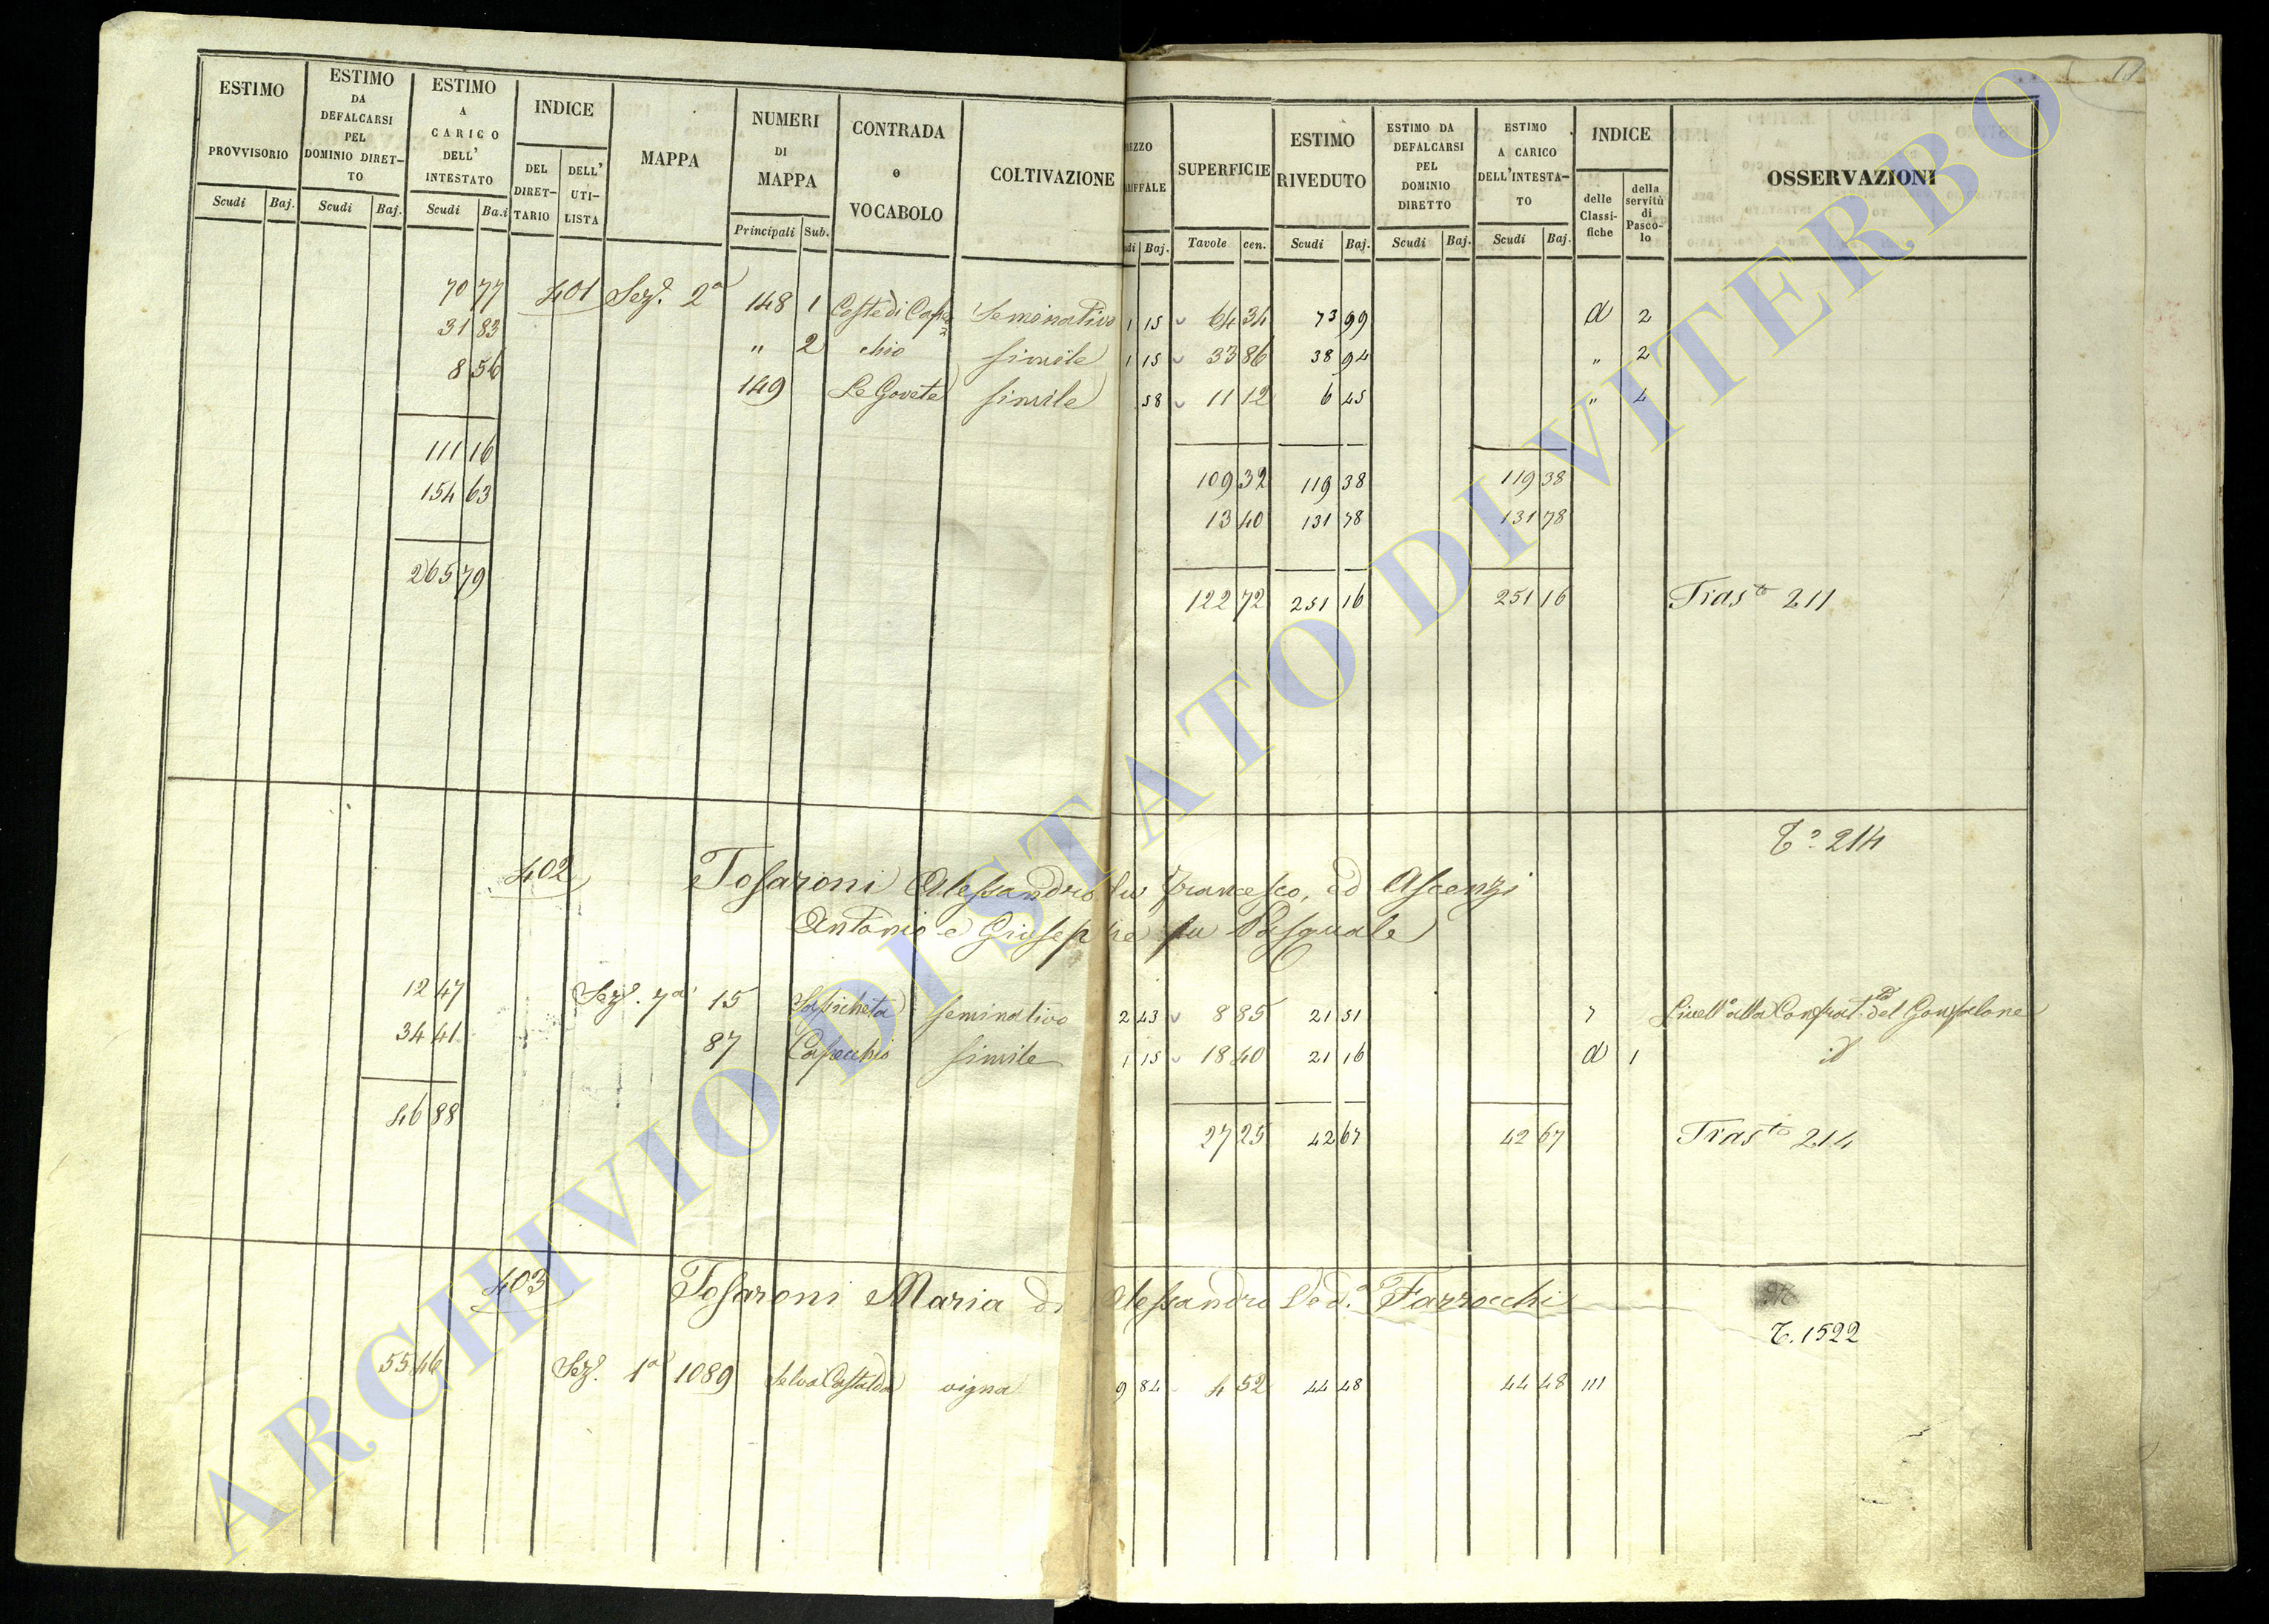 11
ESTIMO PROVVISORIO Scudi Baj.
ESTIMO DA DEFALCARSI PEL DOMINIO DIRET-TO Scudi Baj.
ESTIMO A CARICO DELL' INTESTATO Scudi Ba.i
INDICE DEL DIRET-TARIO DELL' UTI-LISTA
MAPPA
NUMERI DI MAPPA Principali Sub.
CONTRADA o VOCABOLO
COLTIVAZIONE
EZZO RIFFALE di Baj.
SUPERFICIE Tavole cen.
ESTIMO RIVEDUTO Scudi Baj.
ESTIMO DA DEFALCARSI PEL DOMINIO DIRETTO Scudi Baj.
ESTIMO A CARICO DELL'INTESTA-TO Scudi Baj.
INDICE delle Classi-fiche della servitù di Pasco-lo
OSSERVAZIONI
70 77 401 Sez.e 2a 148 1 Coste di Cape= Seminativo 1 15 64 34 73 99 a 2
31 83 " 2 chio simile 1 15 33 86 38 94 " 2
8 56 149 Le Govete simile 58 11 12 6 45 " 4
111 16 109 32 119 38 119 38
154 63 13 40 131 78 131 78
265 79 122 72 251 16 251 16 Trasto 211
402 To 214
Tosaroni Alessandro fu Francesco, ed Ascenzi
Antonio e Giuseppe fu Pasquale
12 47 Sez.e 7a 15 seminativo 2 43 8 85 21 51 Livello alla Confrat.a del Gonfalone
34 41 87 Capecchio simile 1 15 18 40 21 16 a 1 id
46 88 27 25 42 67 42 67 Trasto 214
403 Tosaroni Maria di Alessandro Ved.a Farrocchi
T. 1522
55 46 Sez.e 1a 1089 Selva Castalda vigna 9 84 4 52 44 48 44 48 111
ARCHIVIO DI STATO DI VITERBO